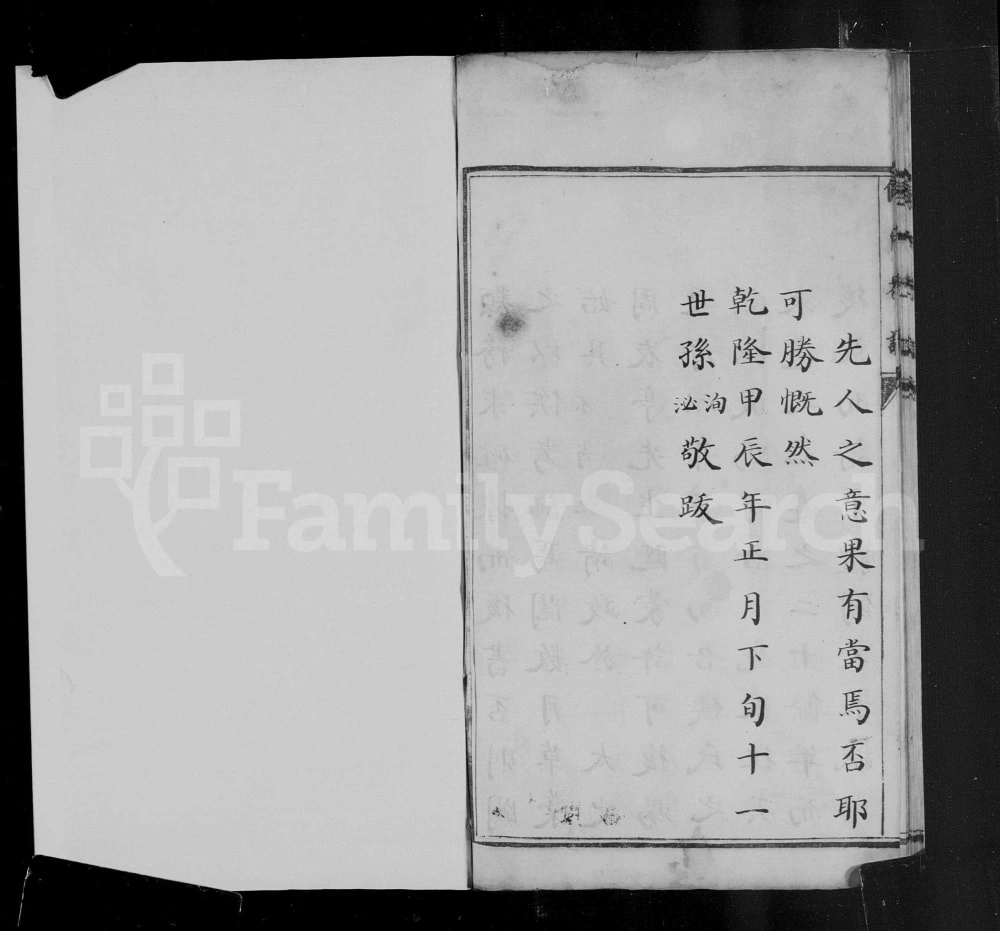 先人之意果有當焉否耶
可勝慨然
乾隆甲辰年正月下旬十一
世孫洵泌敬跋
FamilySearch